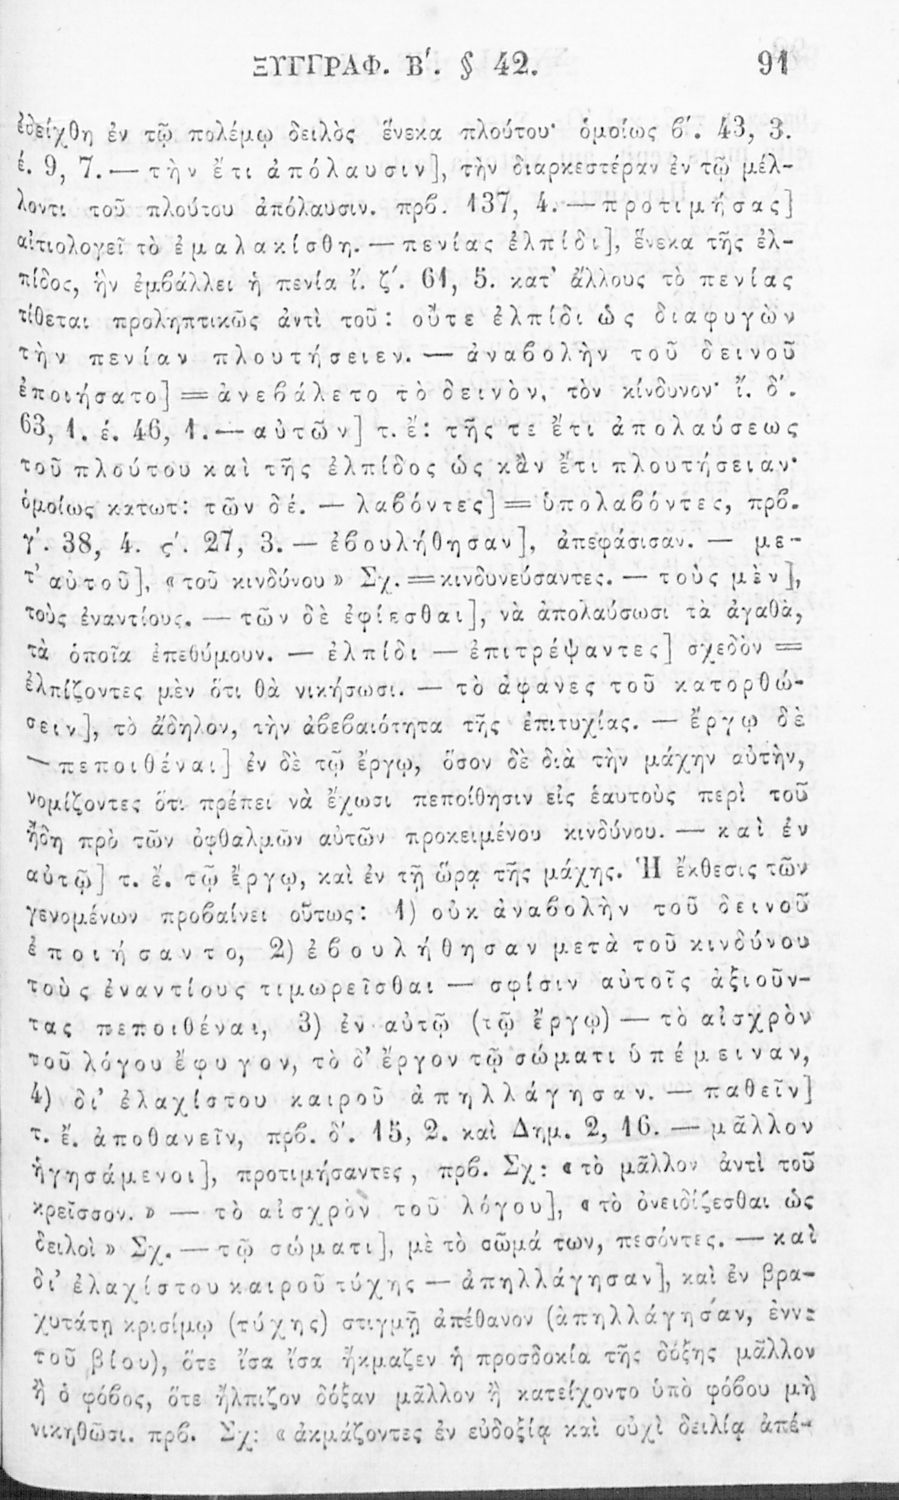 ΞΥΓΓΡΑΦ. Β΄. § 42. 91
ἐδείχθη ἐν τῷ πολέμῳ δειλὸς ἕνεκα πλούτου· ὁμοίως β΄. 43, 3.
έ. 9, 7. — τὴν ἔτι ἀπόλαυσιν], τὴν διαρκεστέραν ἐν τῷ μέλ-
λοντι τοῦ πλούτου ἀπόλαυσιν. πρβ. 137, 4. — προτιμήσας]
αἰτιολογεῖ τὸ ἐμαλακίσθη. — πενίας ἐλπίδι], ἕνεκα τῆς ἐλ-
πίδος, ἣν ἐμβάλλει ἡ πενία ἴ. ζ΄. 61, 5. κατ' ἄλλους τὸ πενίας
τίθεται προληπτικῶς ἀντὶ τοῦ: οὔτε ἐλπίδι ὡς διαφυγὼν
τὴν πενίαν πλουτήσειεν. — ἀναβολὴν τοῦ δεινοῦ
ἐποιήσατο] = ἀνεβάλετο τὸ δεινὸν, τὸν κίνδυνον· ἴ. δ΄.
63, 1. έ. 46, 1. — αὐτῶν] τ. ἔ: τῆς τε ἔτι ἀπολαύσεως
τοῦ πλούτου καὶ τῆς ἐλπίδος ὡς κἂν ἔτι πλουτήσειαν·
ὁμοίως κατωτ: τῶν δέ. — λαβόντες] = ὑπολαβόντες, πρβ.
γ΄. 38, 4. ς΄. 27, 3. — ἐβουλήθησαν], ἀπεφάσισαν. — με-
τ' αὐτοῦ], «τοῦ κινδύνου» Σχ. = κινδυνεύσαντες. — τοὺς μὲν],
τοὺς ἐναντίους. — τῶν δὲ ἐφίεσθαι], νὰ ἀπολαύσωσι τὰ ἀγαθὰ,
τὰ ὁποῖα ἐπεθύμουν. — ἐλπίδι — ἐπιτρέψαντες] σχεδὸν =
ἐλπίζοντες μὲν ὅτι θὰ νικήσωσι. — τὸ ἀφανες τοῦ κατορθώ-
σειν], τὸ ἄδηλον, τὴν ἀβεβαιότητα τῆς ἐπιτυχίας. — ἔργῳ δὲ
— πεποιθέναι] ἐν δὲ τῷ ἔργῳ, ὅσον δὲ διὰ τὴν μάχην αὐτὴν,
νομίζοντες ὅτι πρέπει νὰ ἔχωσι πεποίθησιν εἰς ἑαυτοὺς περὶ τοῦ
ἤδη πρὸ τῶν ὀφθαλμῶν αὐτῶν προκειμένου κινδύνου. — καὶ ἐν
αὐτῷ] τ. ἔ. τῷ ἔργῳ, καὶ ἐν τῇ ὥρᾳ τῆς μάχης. Ἡ ἔκθεσις τῶν
γενομένων προβαίνει οὕτως: 1) οὐκ ἀναβολὴν τοῦ δεινοῦ
ἐποιήσαντο, 2) ἐβουλήθησαν μετὰ τοῦ κινδύνου
τοὺς ἐναντίους τιμωρεῖσθαι — σφίσιν αὐτοῖς ἀξιοῦν-
τας πεποιθέναι, 3) ἐν αὐτῷ (τῷ ἔργῳ) — τὸ αἰσχρὸν
τοῦ λόγου ἔφυγον, τὸ δ' ἔργον τῷ σώματι ὑπέμειναν,
4) δι' ἐλαχίστου καιροῦ ἀπηλλάγησαν. — παθεῖν]
τ. ἔ. ἀποθανεῖν, πρβ. δ΄. 15, 2. καὶ Δημ. 2, 16. — μᾶλλον
ἡγησάμενοι], προτιμήσαντες, πρβ. Σχ: «τὸ μᾶλλον ἀντὶ τοῦ
κρεῖσσον.» — τὸ αἰσχρὸν τοῦ λόγου], «τὸ ὀνειδίζεσθαι ὡς
δειλοὶ» Σχ. — τῷ σώματι], μὲ τὸ σῶμά των, πεσόντες. — καὶ
δι' ἐλαχίστου καιροῦ τύχης — ἀπηλλάγησαν], καὶ ἐν βρα-
χυτάτῃ κρισίμῳ (τύχης) στιγμῇ ἀπέθανον (ἀπηλλάγησαν, ἐνν:
τοῦ βίου), ὅτε ἴσα ἴσα ἤκμαζεν ἡ προσδοκία τῆς δόξης μᾶλλον
ἢ ὁ φόβος, ὅτε ἤλπιζον δόξαν μᾶλλον ἢ κατείχοντο ὑπὸ φόβου μὴ
νικηθῶσι. πρβ. Σχ: «ἀκμάζοντες ἐν εὐδοξίᾳ καὶ οὐχὶ δειλίᾳ ἀπέ-